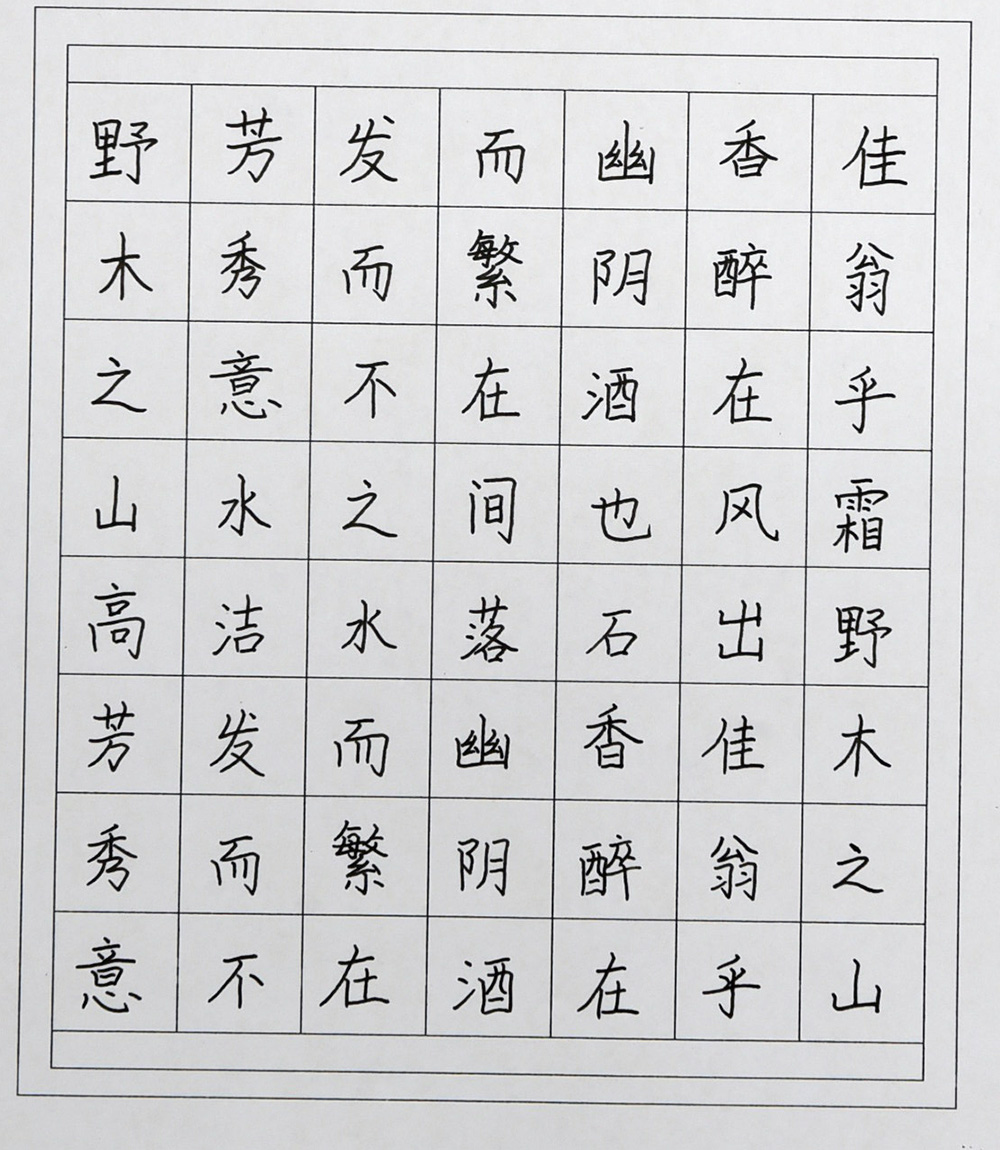 野芳发而幽香佳
木秀而繁阴醉翁
之意不在酒在乎
山水之间也风霜
高洁水落石出野
芳发而幽香佳木
秀而繁阴醉翁之
意不在酒在乎山